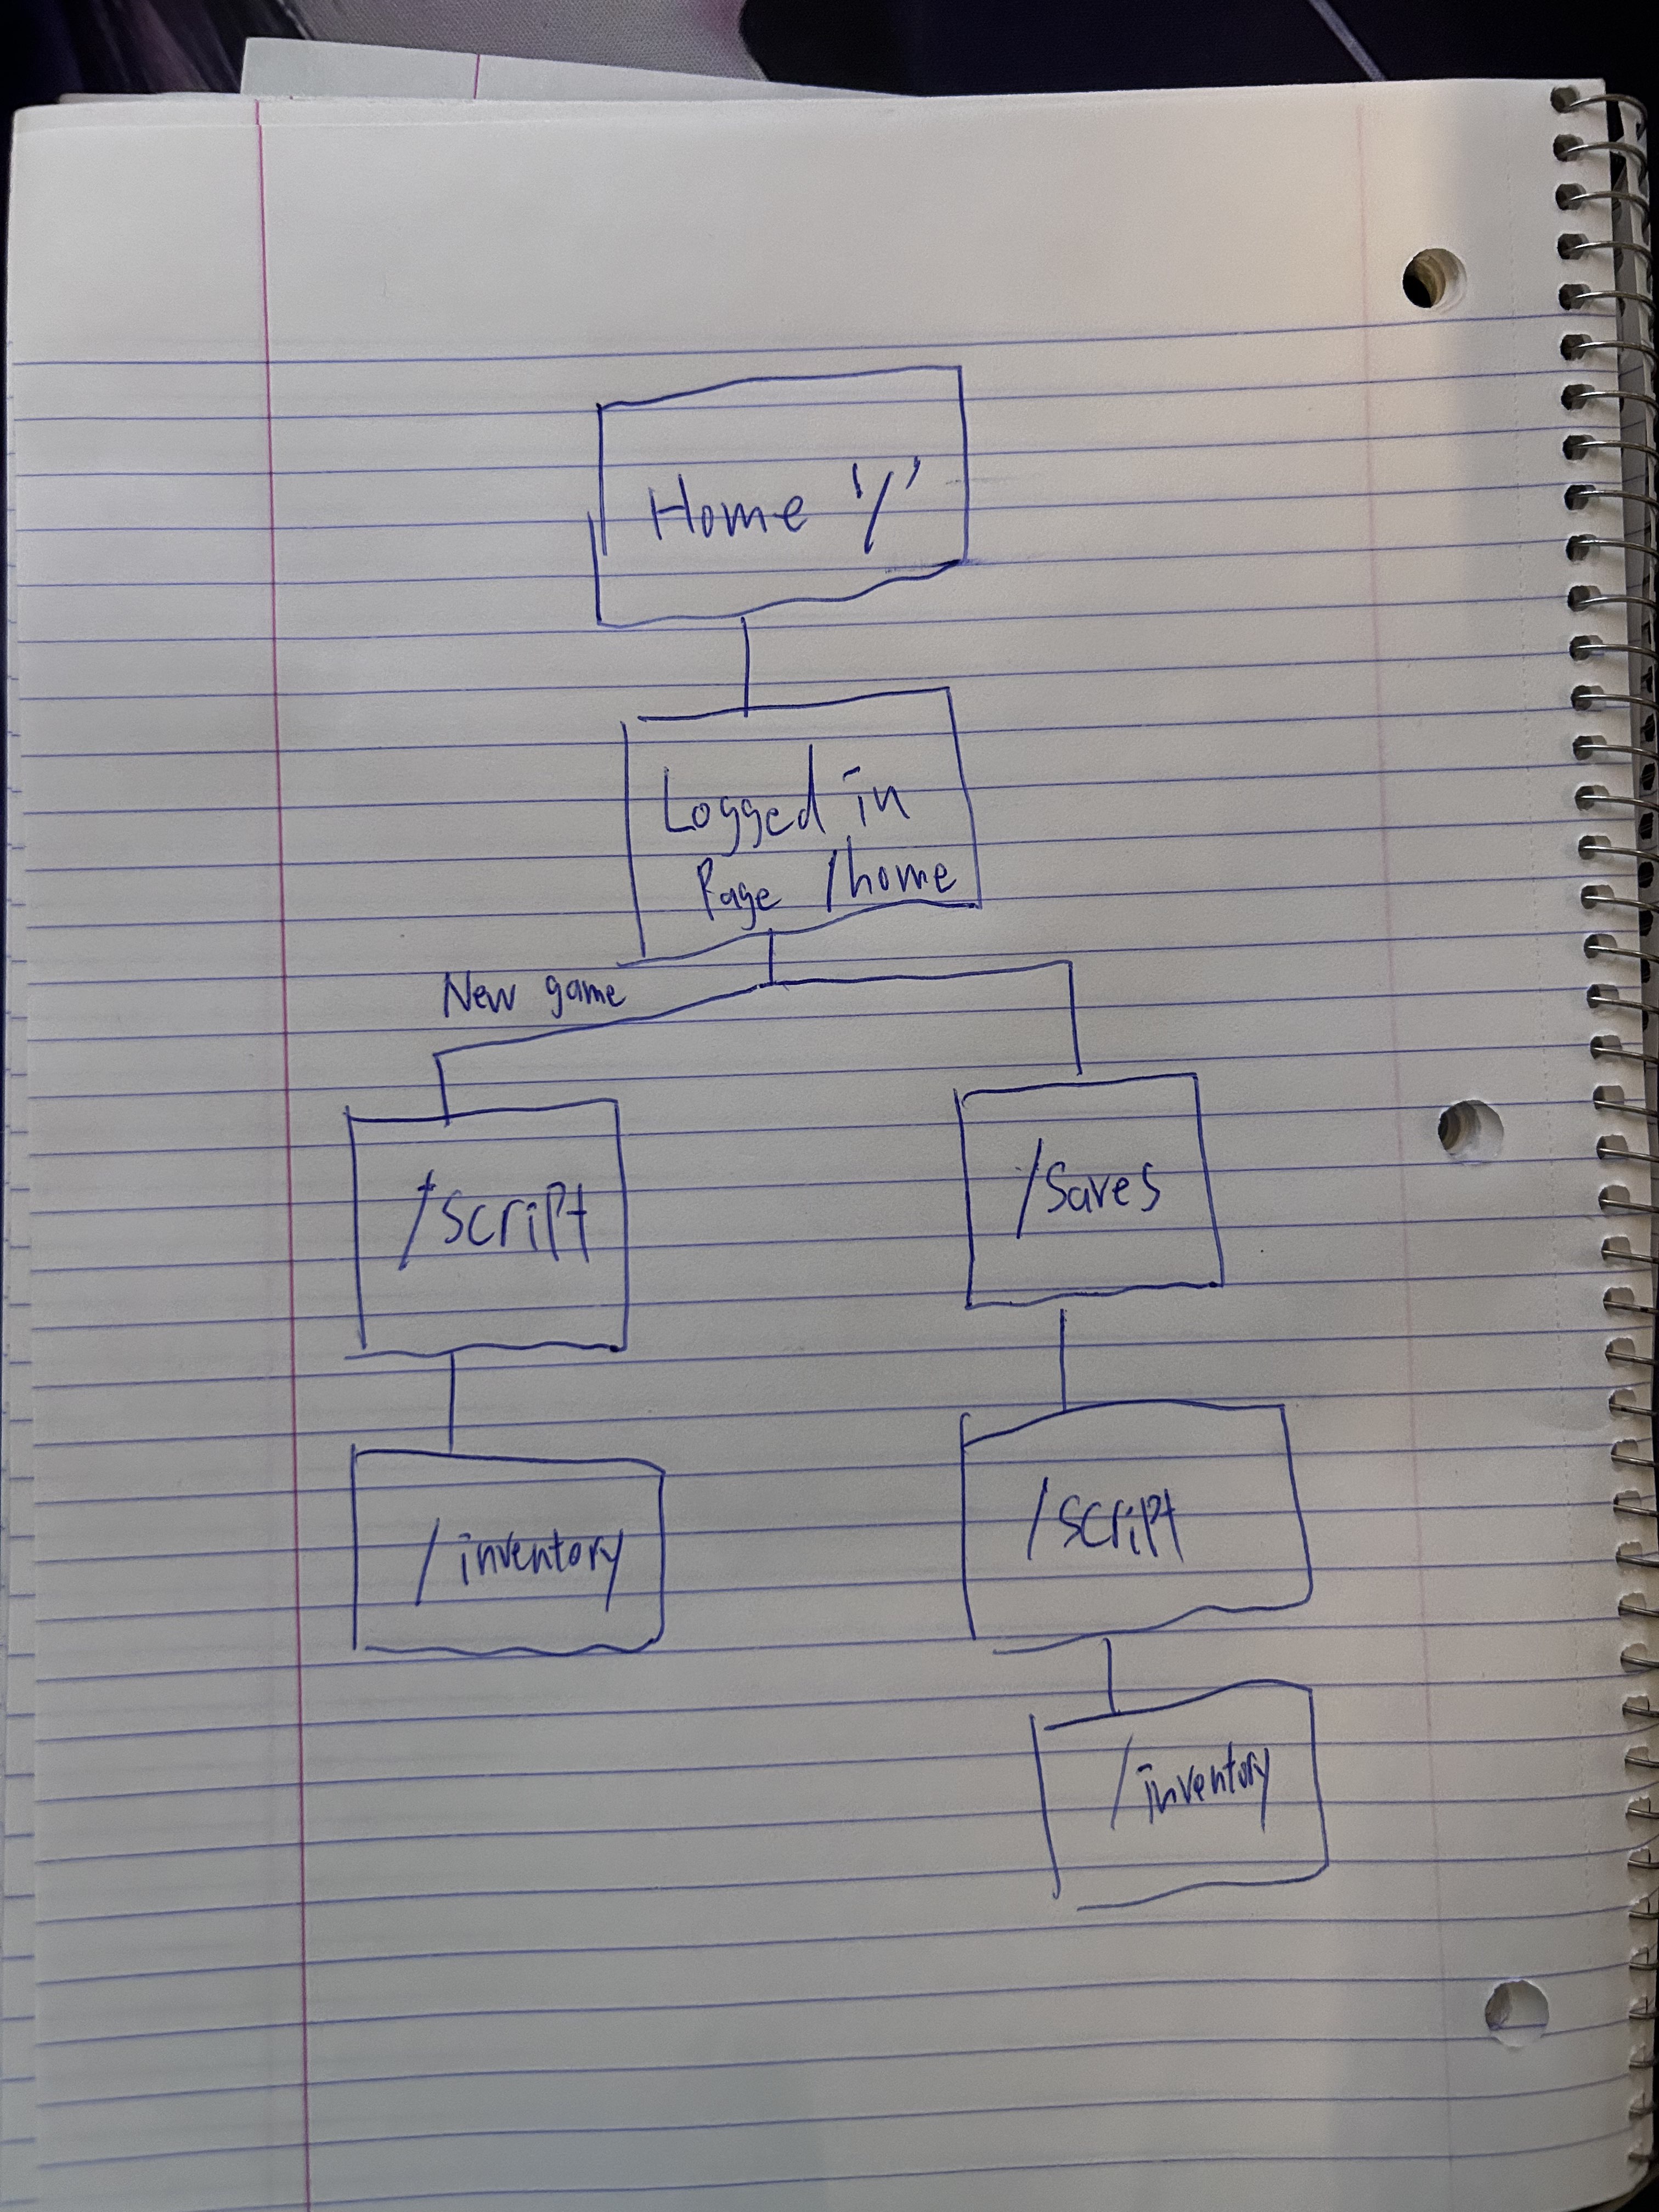 Home '/'
Logged in
Page /home
New game
/script
/saves
/inventory
/script
/inventory